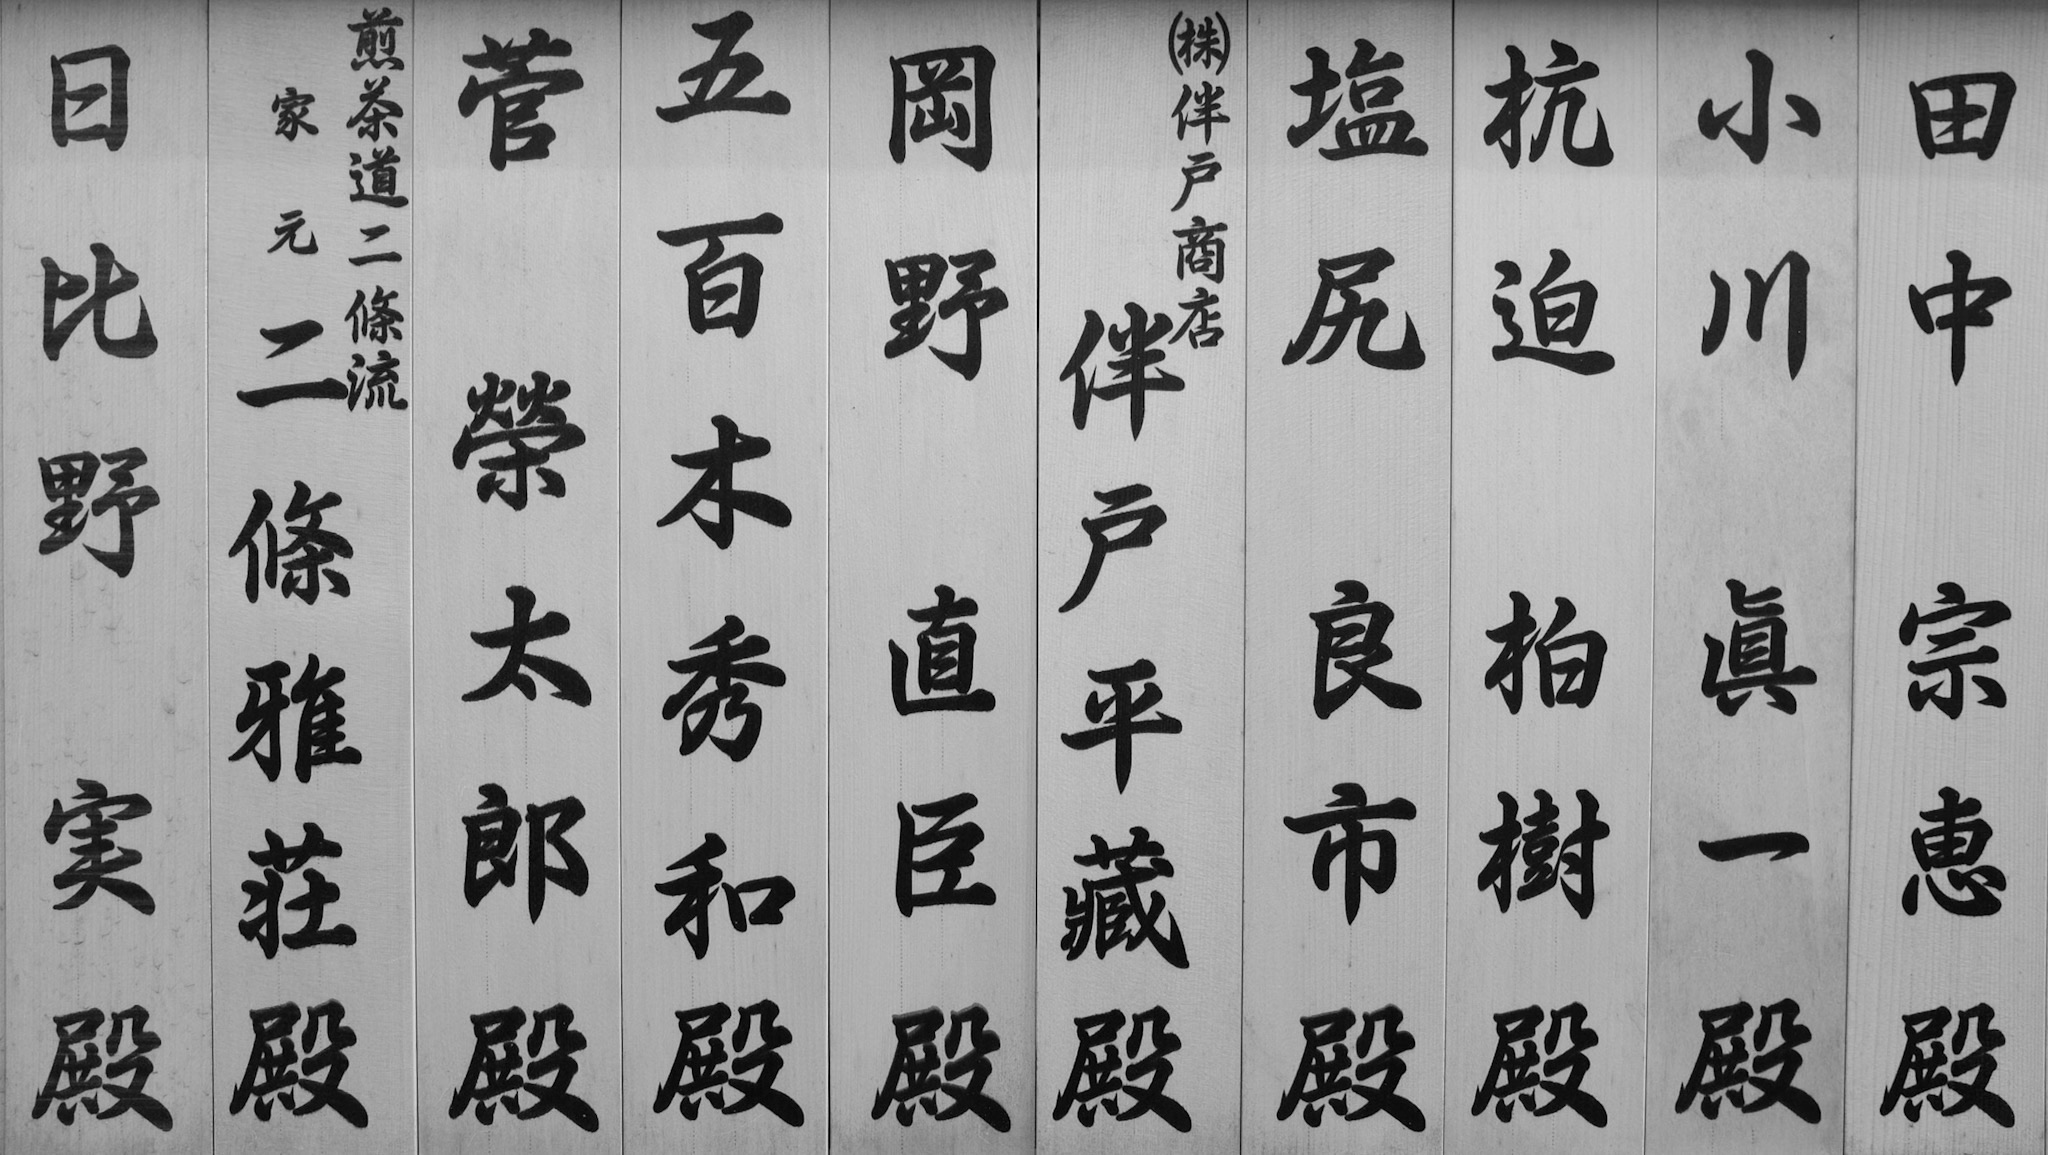 田中宗恵殿
小川眞一殿
杭迫柏樹殿
塩尻良市殿
㈱伴戸商店
伴戸平藏殿
岡野直臣殿
五百木秀和殿
菅榮太郎殿
煎茶道二條流
家元二條雅荘殿
日比野実殿